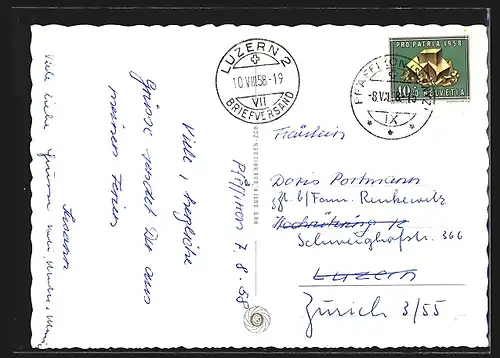 Pfäffikon 7.8.58
Viele, herzliche
Grüsse sendet Dir aus
meinen Ferien
Viele liebe Grüsse von
LUZERN 2
10.VIII.58-19
VII
BRIEFVERSAND
PFÄFFIKON
-8.VIII.58-
IX
PRO PATRIA 1958
10+
HELVETIA
Fräulein
Doris Portmann
b/Fam. Renkewitz
Hochrütiring 12
Schweighofstr. 366
Luzern
Zürich 3/55